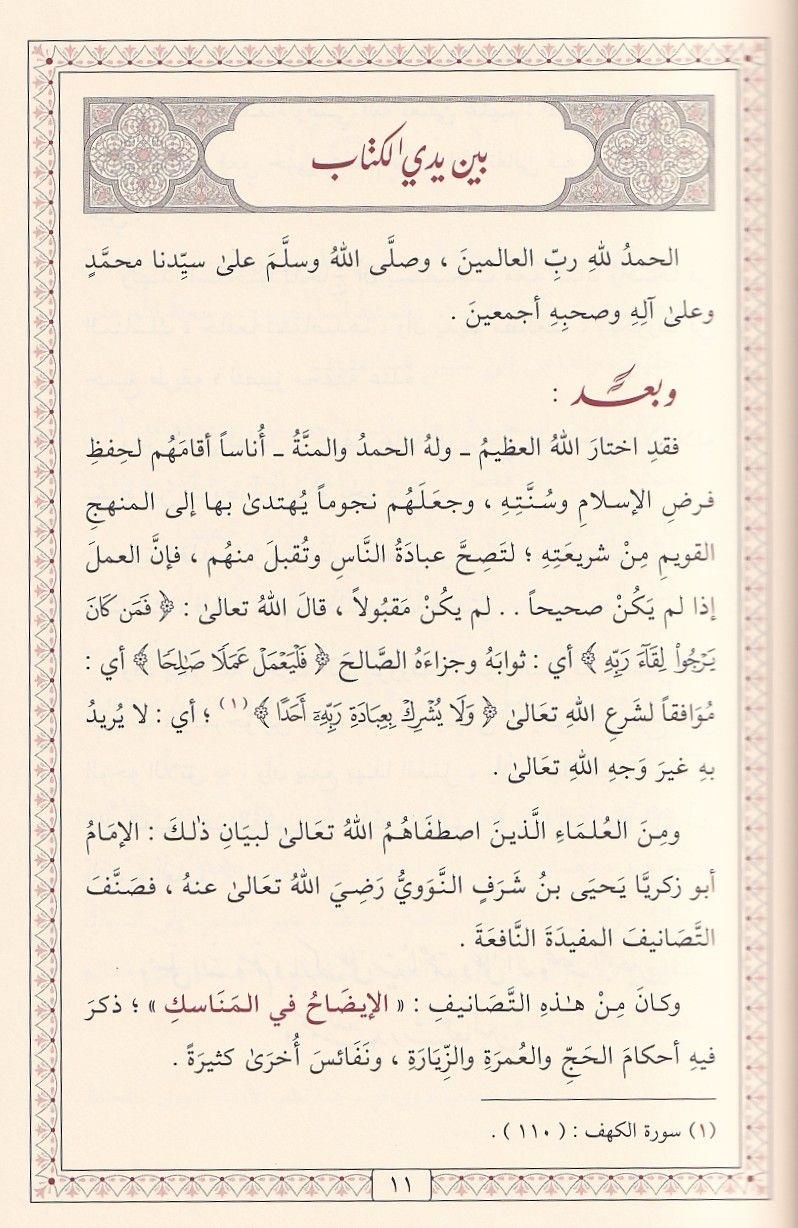 بين يدي الكتاب
الحمدُ للهِ ربِّ العالمينَ ، وصلَّى اللهُ وسلَّمَ علىٰ سيِّدنا محمَّدٍ
وعلىٰ آلِهِ وصحبِهِ أجمعينَ .
وبعد :
فقدِ اختارَ اللهُ العظيمُ ـ ولهُ الحمدُ والمنَّةُ ـ أُناساً أقامَهُم لحِفظِ
فرضِ الإسلامِ وسُنَّتِهِ ، وجعلَهُم نجوماً يُهتدىٰ بها إلى المنهجِ
القويمِ مِنْ شريعَتِهِ ؛ لتَصِحَّ عبادَةُ النَّاسِ وتُقبلَ منهُم ، فإنَّ العملَ
إذا لم يَكُنْ صحيحاً . . لم يكُنْ مَقبُولاً ، قالَ اللهُ تعالىٰ : ﴿ فَمَن كَانَ
يَرْجُوا۟ لِقَآءَ رَبِّهِ ﴾ أي : ثوابَهُ وجزاءَهُ الصَّالحَ ﴿ فَلْيَعْمَلْ عَمَلًا صَٰلِحًا ﴾ أي :
مُوَافقاً لشَرعِ اللهِ تعَالىٰ ﴿ وَلَا يُشْرِكْ بِعِبَادَةِ رَبِّهِۦٓ أَحَدًۢا ﴾ (١) ؛ أي : لا يُريدُ
بهِ غيرَ وَجهِ اللهِ تعَالىٰ .
ومِنَ العُلمَاءِ الَّذينَ اصطفَاهُمُ اللهُ تعَالىٰ لبيَانِ ذٰلكَ : الإمَامُ
أبو زكريَّا يَحيَى بنُ شَرَفٍ النَّوَويُّ رَضِيَ اللهُ تعَالىٰ عنهُ ، فصَنَّفَ
التَّصَانيفَ المفيدَةَ النَّافعَةَ .
وكانَ مِنْ هـٰذهِ التَّصَانيفِ : « الإيضَاحُ في المَنَاسكِ » ؛ ذكرَ
فيهِ أحكامَ الحَجِّ والعُمرَةِ والزِّيَارَةِ ، ونَفَائسَ أُخرَىٰ كثيرَةً .
(١) سورة الكهف : ( ١١٠ ) .
١١